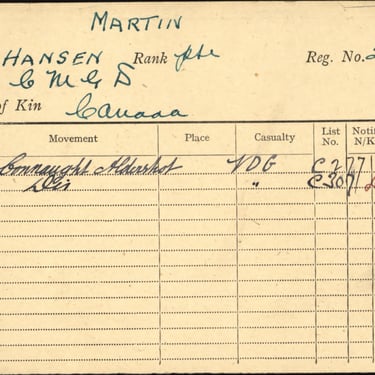 MARTIN
HANSEN Rank pte Reg. No. 2
C M G D
of Kin Canada
Movement Place Casualty List No. Notif N/K
Connaught Aldershot VDG C 277
Dis " C 307